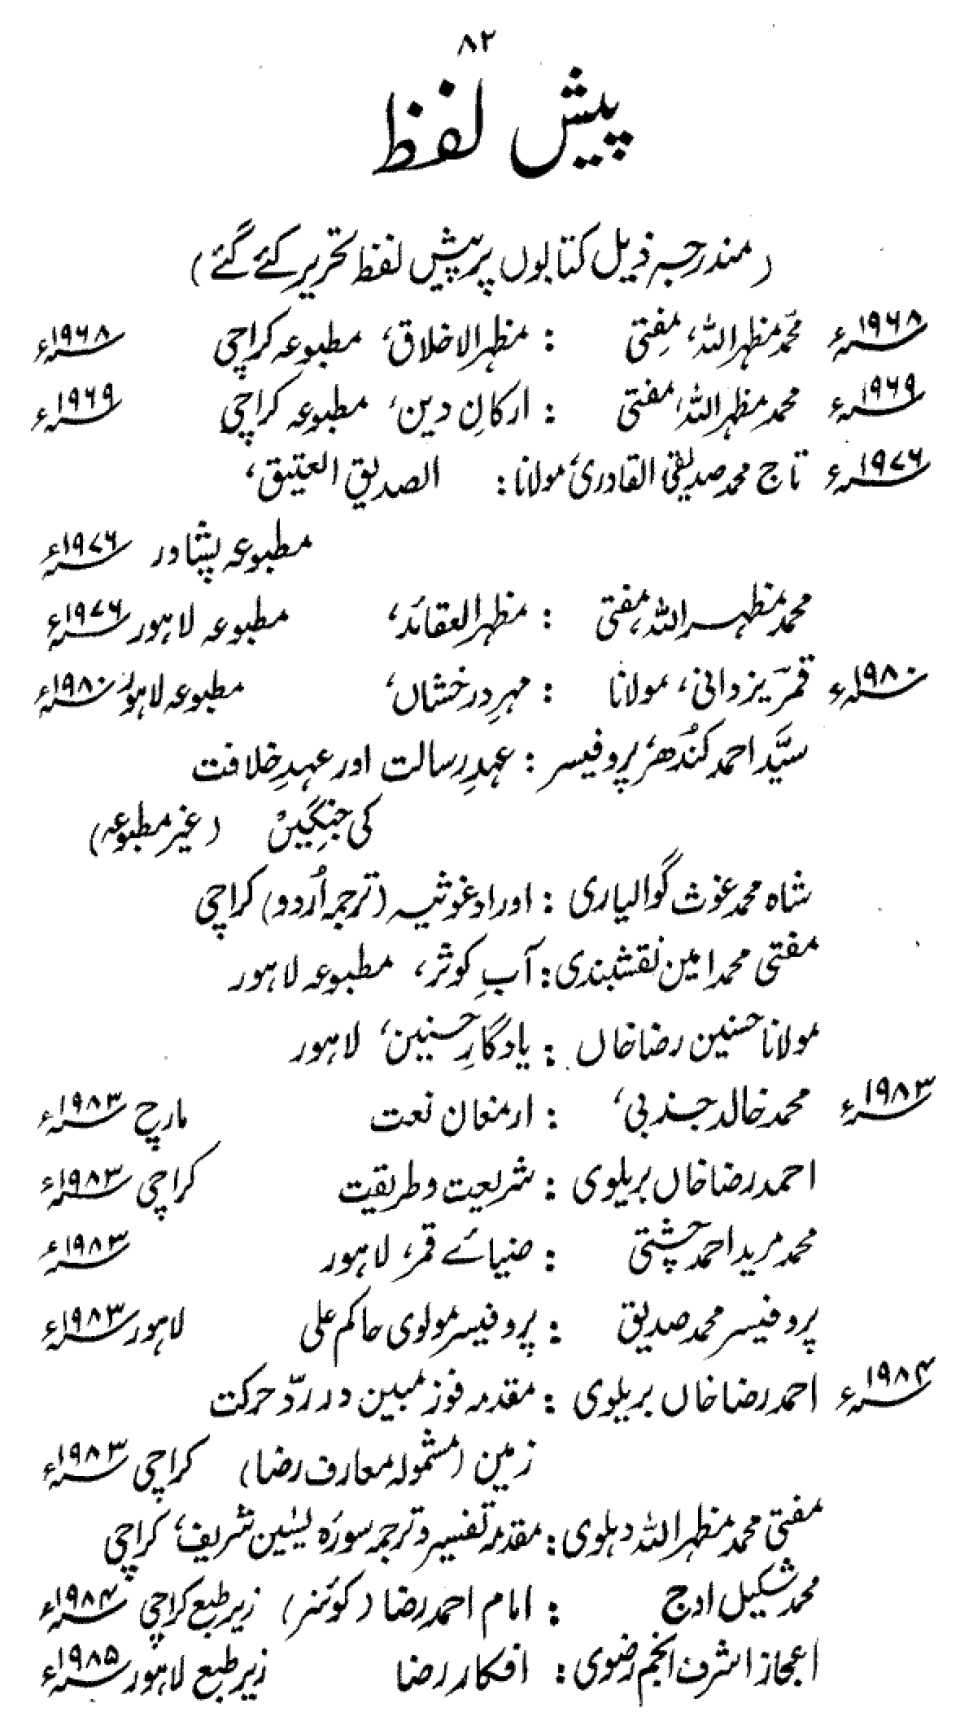 ۸۲
پیش لفظ
(مندرجہ ذیل کتابوں پر پیش لفظ تحریر کئے گئے)
۱۹۶۸ء محمد مظہر اللہ، مفتی : مظہر الاخلاق، مطبوعہ کراچی ۱۹۶۸ء
۱۹۶۹ء محمد مظہر اللہ، مفتی : ارکانِ دین، مطبوعہ کراچی ۱۹۶۹ء
۱۹۷۶ء تاج محمد صدیقی القادری، مولانا : الصدیق العتیق،
مطبوعہ پشاور ۱۹۷۶ء
محمد مظہر اللہ، مفتی : مظہر العقائد، مطبوعہ لاہور ۱۹۷۶ء
۱۹۸۰ء قمر یزدانی، مولانا : مہرِ درخشاں، مطبوعہ لاہور ۱۹۸۰ء
سیّد احمد کندھر، پروفیسر : عہدِ رسالت اور عہدِ خلافت
کی جنگیں (غیر مطبوعہ)
شاہ محمد غوث گوالیاری : اوراد غوثیہ (ترجمہ اُردو) کراچی
مفتی محمد امین نقشبندی : آبِ کوثر، مطبوعہ لاہور
مولانا حسنین رضا خاں : یادگارِ حسنین، لاہور
۱۹۸۳ء محمد خالد جذبی، : ارمغان نعت مارچ ۱۹۸۳ء
احمد رضا خاں بریلوی : شریعت و طریقت کراچی ۱۹۸۳ء
محمد مرید احمد چشتی : ضیائے قمر، لاہور ۱۹۸۳ء
پروفیسر محمد صدیق : پروفیسر مولوی حاکم علی لاہور ۱۹۸۳ء
۱۹۸۴ء احمد رضا خاں بریلوی : مقدمہ فوز مبین در ردّ حرکت
زمین (مشمولہ معارف رضا) کراچی ۱۹۸۳ء
مفتی محمد مظہر اللہ دہلوی : مقدمہ تفسیر و ترجمہ سورہ یٰسین شریف، کراچی
محمد شکیل اوج : امام احمد رضا (کوئنر) زیر طبع کراچی ۱۹۸۴ء
اعجاز اشرف انجم رضوی : افکار رضا زیر طبع لاہور ۱۹۸۵ء